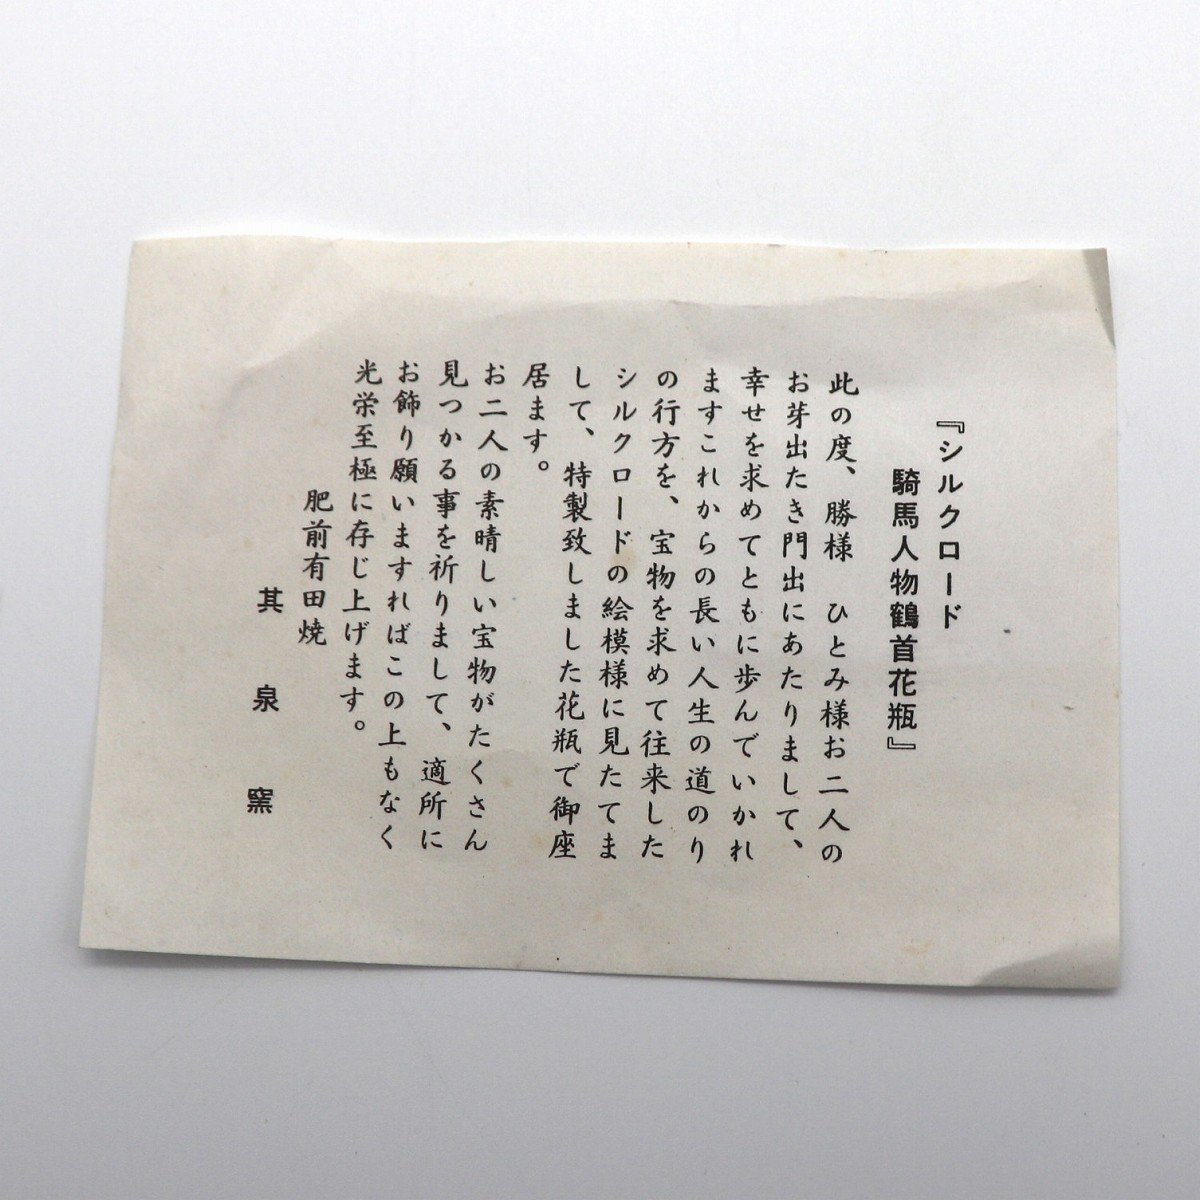 『シルクロード
騎馬人物鶴首花瓶』
此の度、勝様　ひとみ様お二人の
お芽出たき門出にあたりまして、
幸せを求めてともに歩んでいかれ
ますこれからの長い人生の道のり
の行方を、宝物を求めて往来した
シルクロードの絵模様に見たてま
して、特製致しました花瓶で御座
居ます。
お二人の素晴しい宝物がたくさん
見つかる事を祈りまして、適所に
お飾り願いますればこの上もなく
光栄至極に存じ上げます。
肥前有田焼
其泉窯